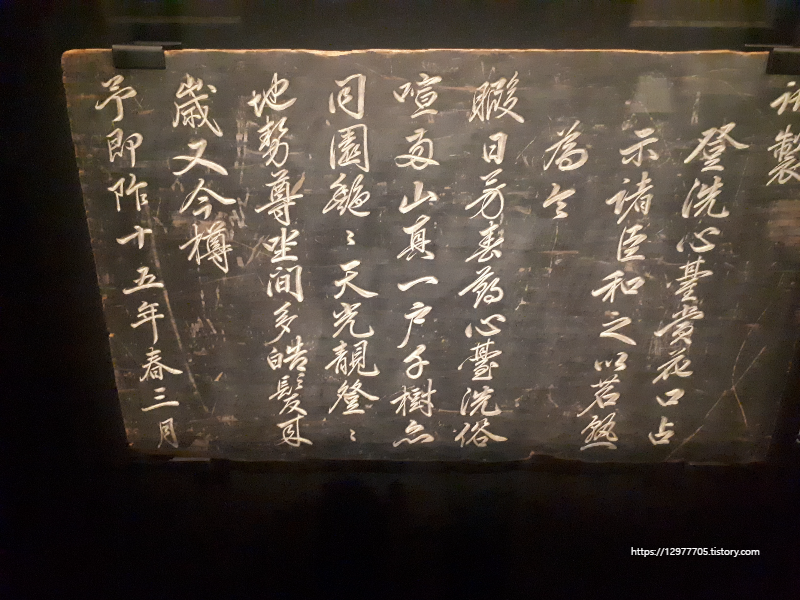 製
登洗心臺賞花口占
示諸臣和之以茗熟
為令
暇日芳春心臺洗俗
喧兩山真一戶千樹亦
同園天光靚登々
地勢尊坐間多皓髮來
歲又今樽
予即阼十五年春三月
https://12977705.tistory.com